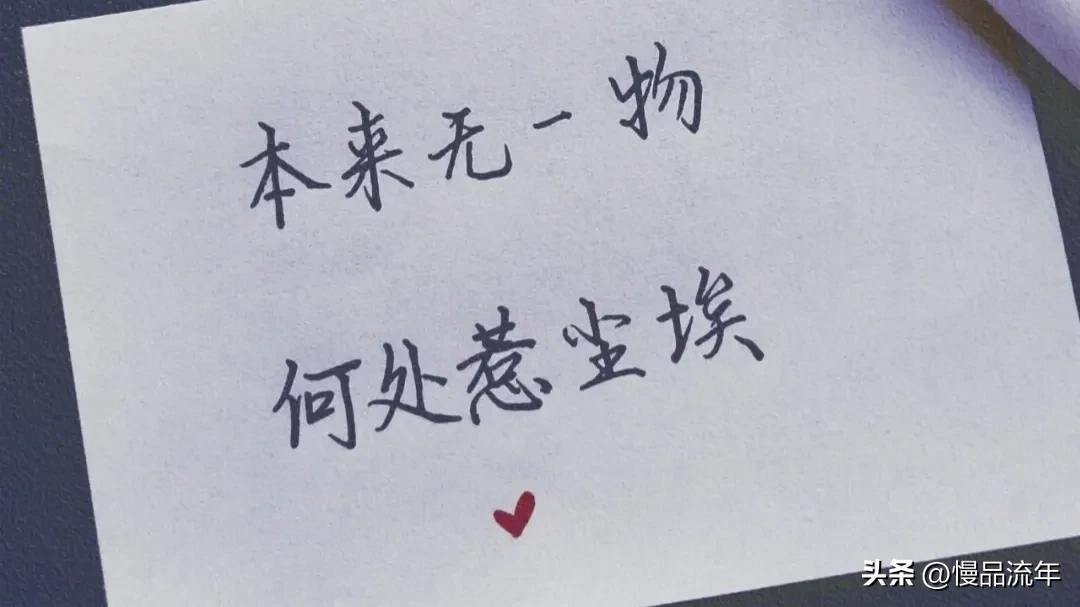 本来无一物
何处惹尘埃
头条 @慢品流年